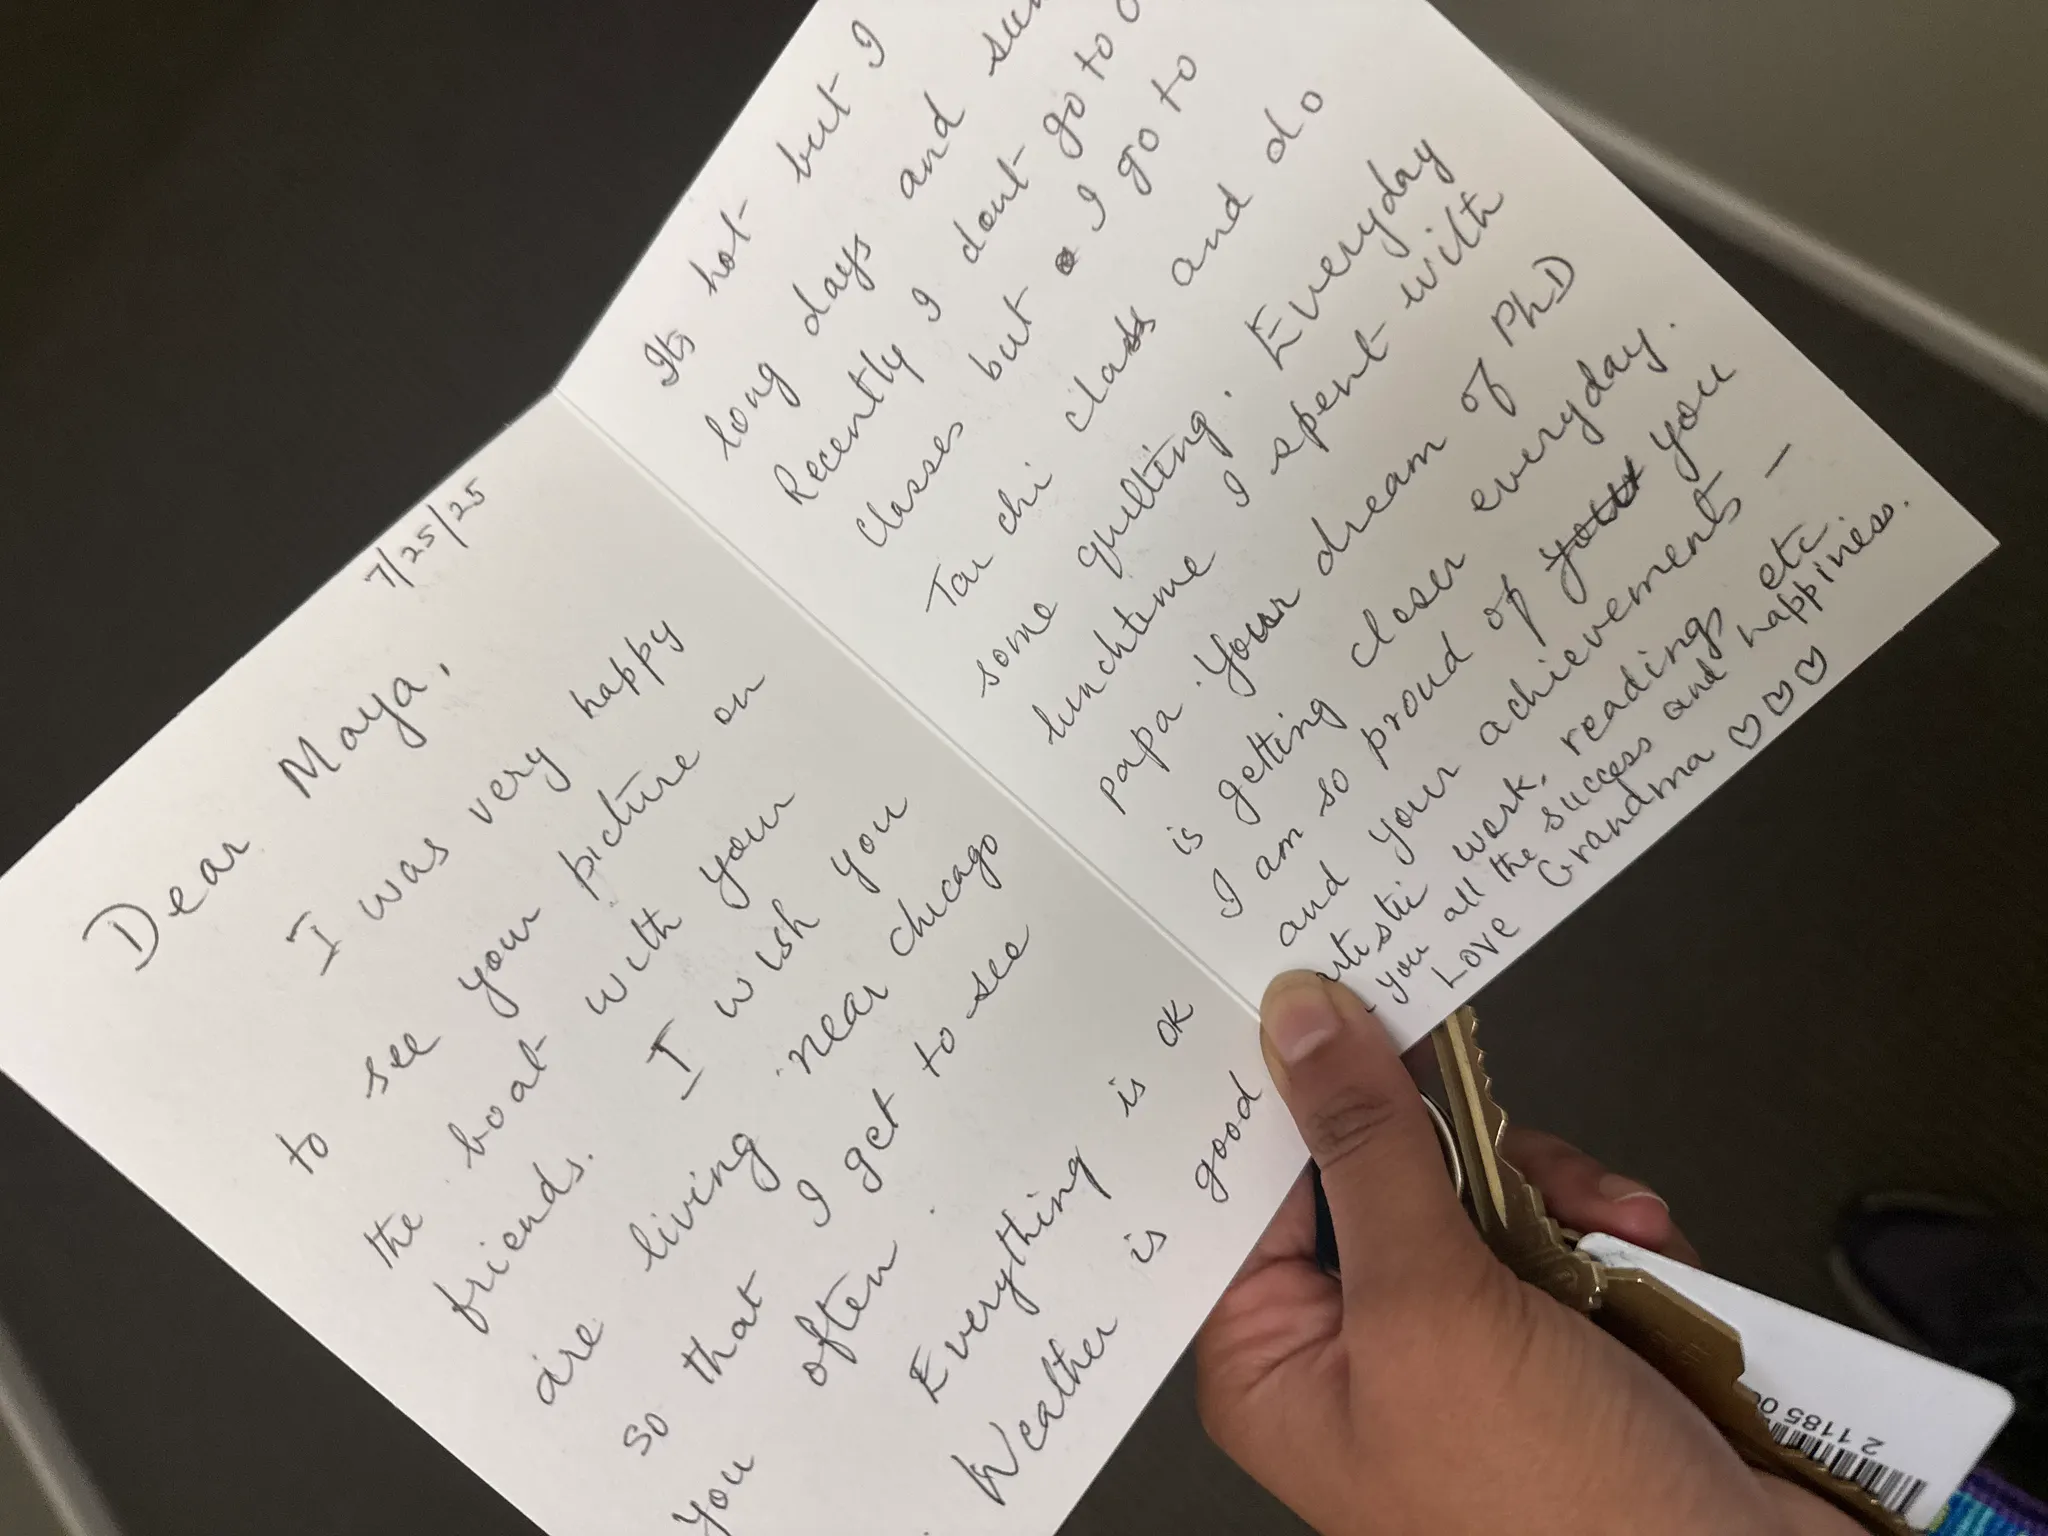 7/25/25
Dear Maya,
I was very happy
to see your picture on
the boat with your
friends. I wish you
are living near chicago
so that I get to see
you often.
Everything is ok
Weather is good
Its hot but I
long days and
Recently I dont go to
Classes but I go to
Tai chi class and do
some quilting. Everyday
lunchtime I spent with
papa. Your dream of PhD
is getting closer everyday.
I am so proud of you
and your achievements -
artistic work, readings etc
you all the success and happiness.
Love Grandma ♡♡♡
2 1185 0